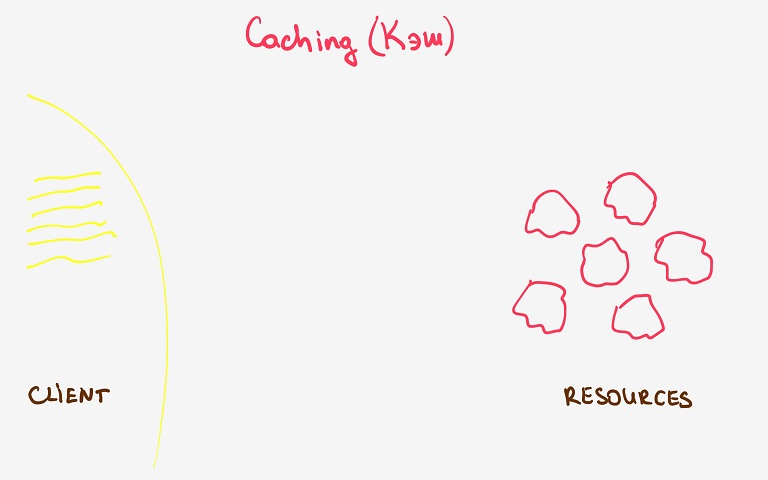 Caching (Кэш)
CLIENT
RESOURCES